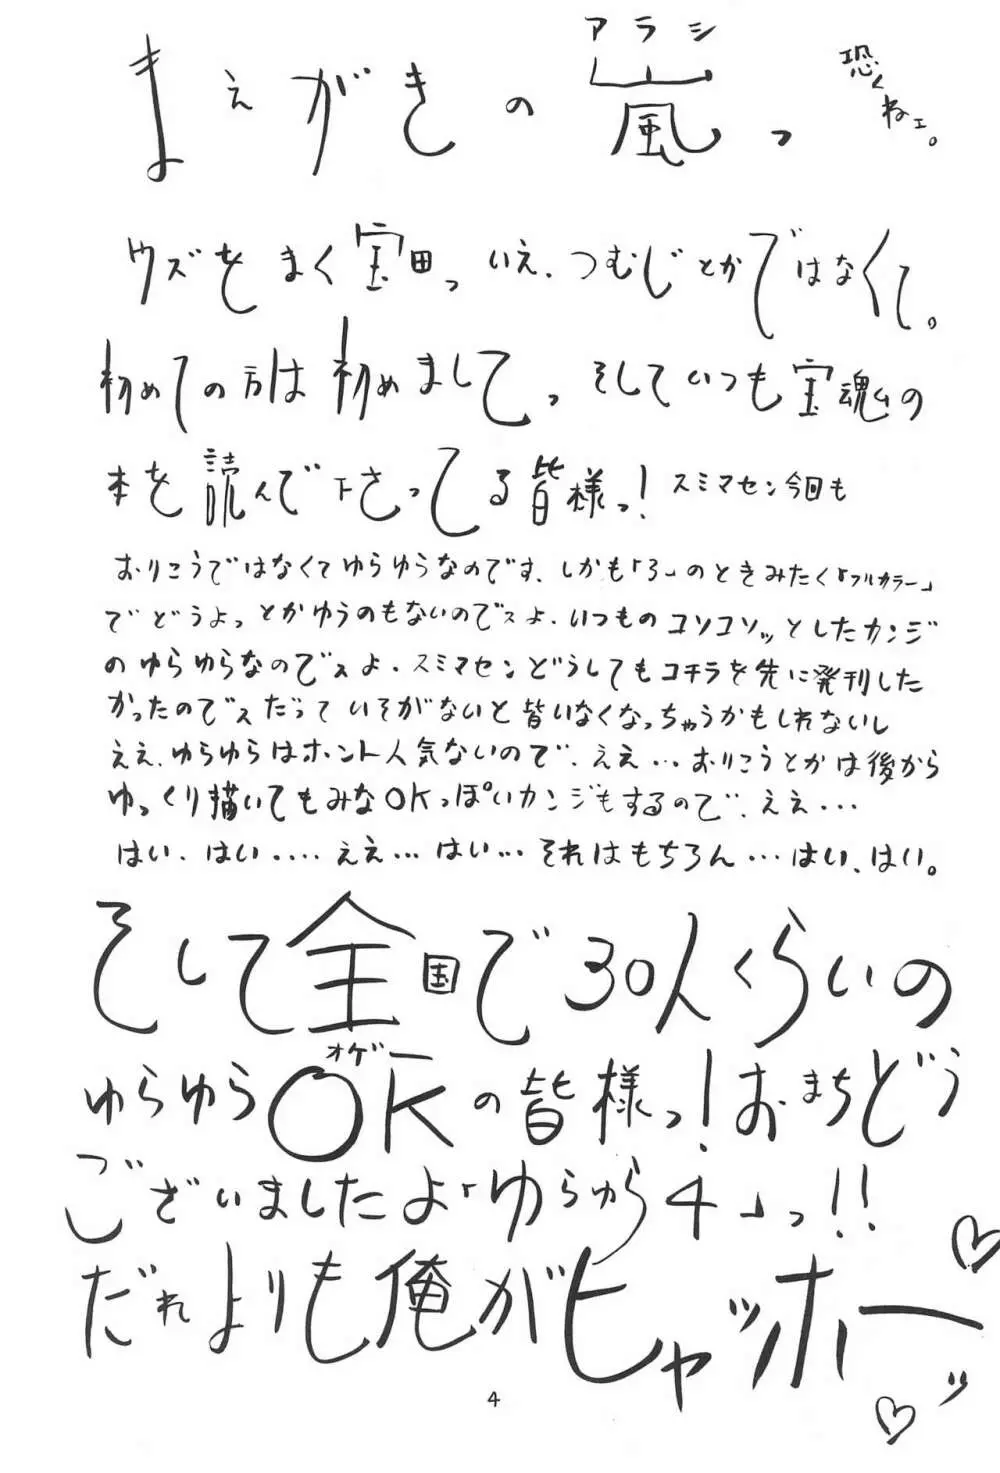 アラシ
まえがきの嵐っ
恐くねェ。
ウズをまく宝田っ いえ、つむじとかではなくて。
初めての方は初めましてっ、そしていつも宝魂ムの
本を読んで下さってる皆様っ! スミマセン今回も
おりこうではなくてゆらゆらなのです、しかも「3」のときみたく「フルカラー」
でどうよっ とかゆうのもないのでスよ、いつものコソコソッとしたカンジ
のゆらゆらなのでスよ、スミマセンどうしてもコチラを先に発刊した
かったのでスだっていそがないと皆いなくなっちゃうかもしれないし
ええ、ゆらゆらはホント人気ないので、ええ…おりこうとかは後から
ゆっくり描いてもみなOKっぽいカンジもするので、ええ…
はい、はい….ええ…はい…それはもちろん…はい、はい。
そして全国で30人くらいの
オゲー
ゆらゆらOKの皆様っ!おまちどう
ございましたよ「ゆらゆら4」っ!!
だれよりも俺がヒャッホーッ
4